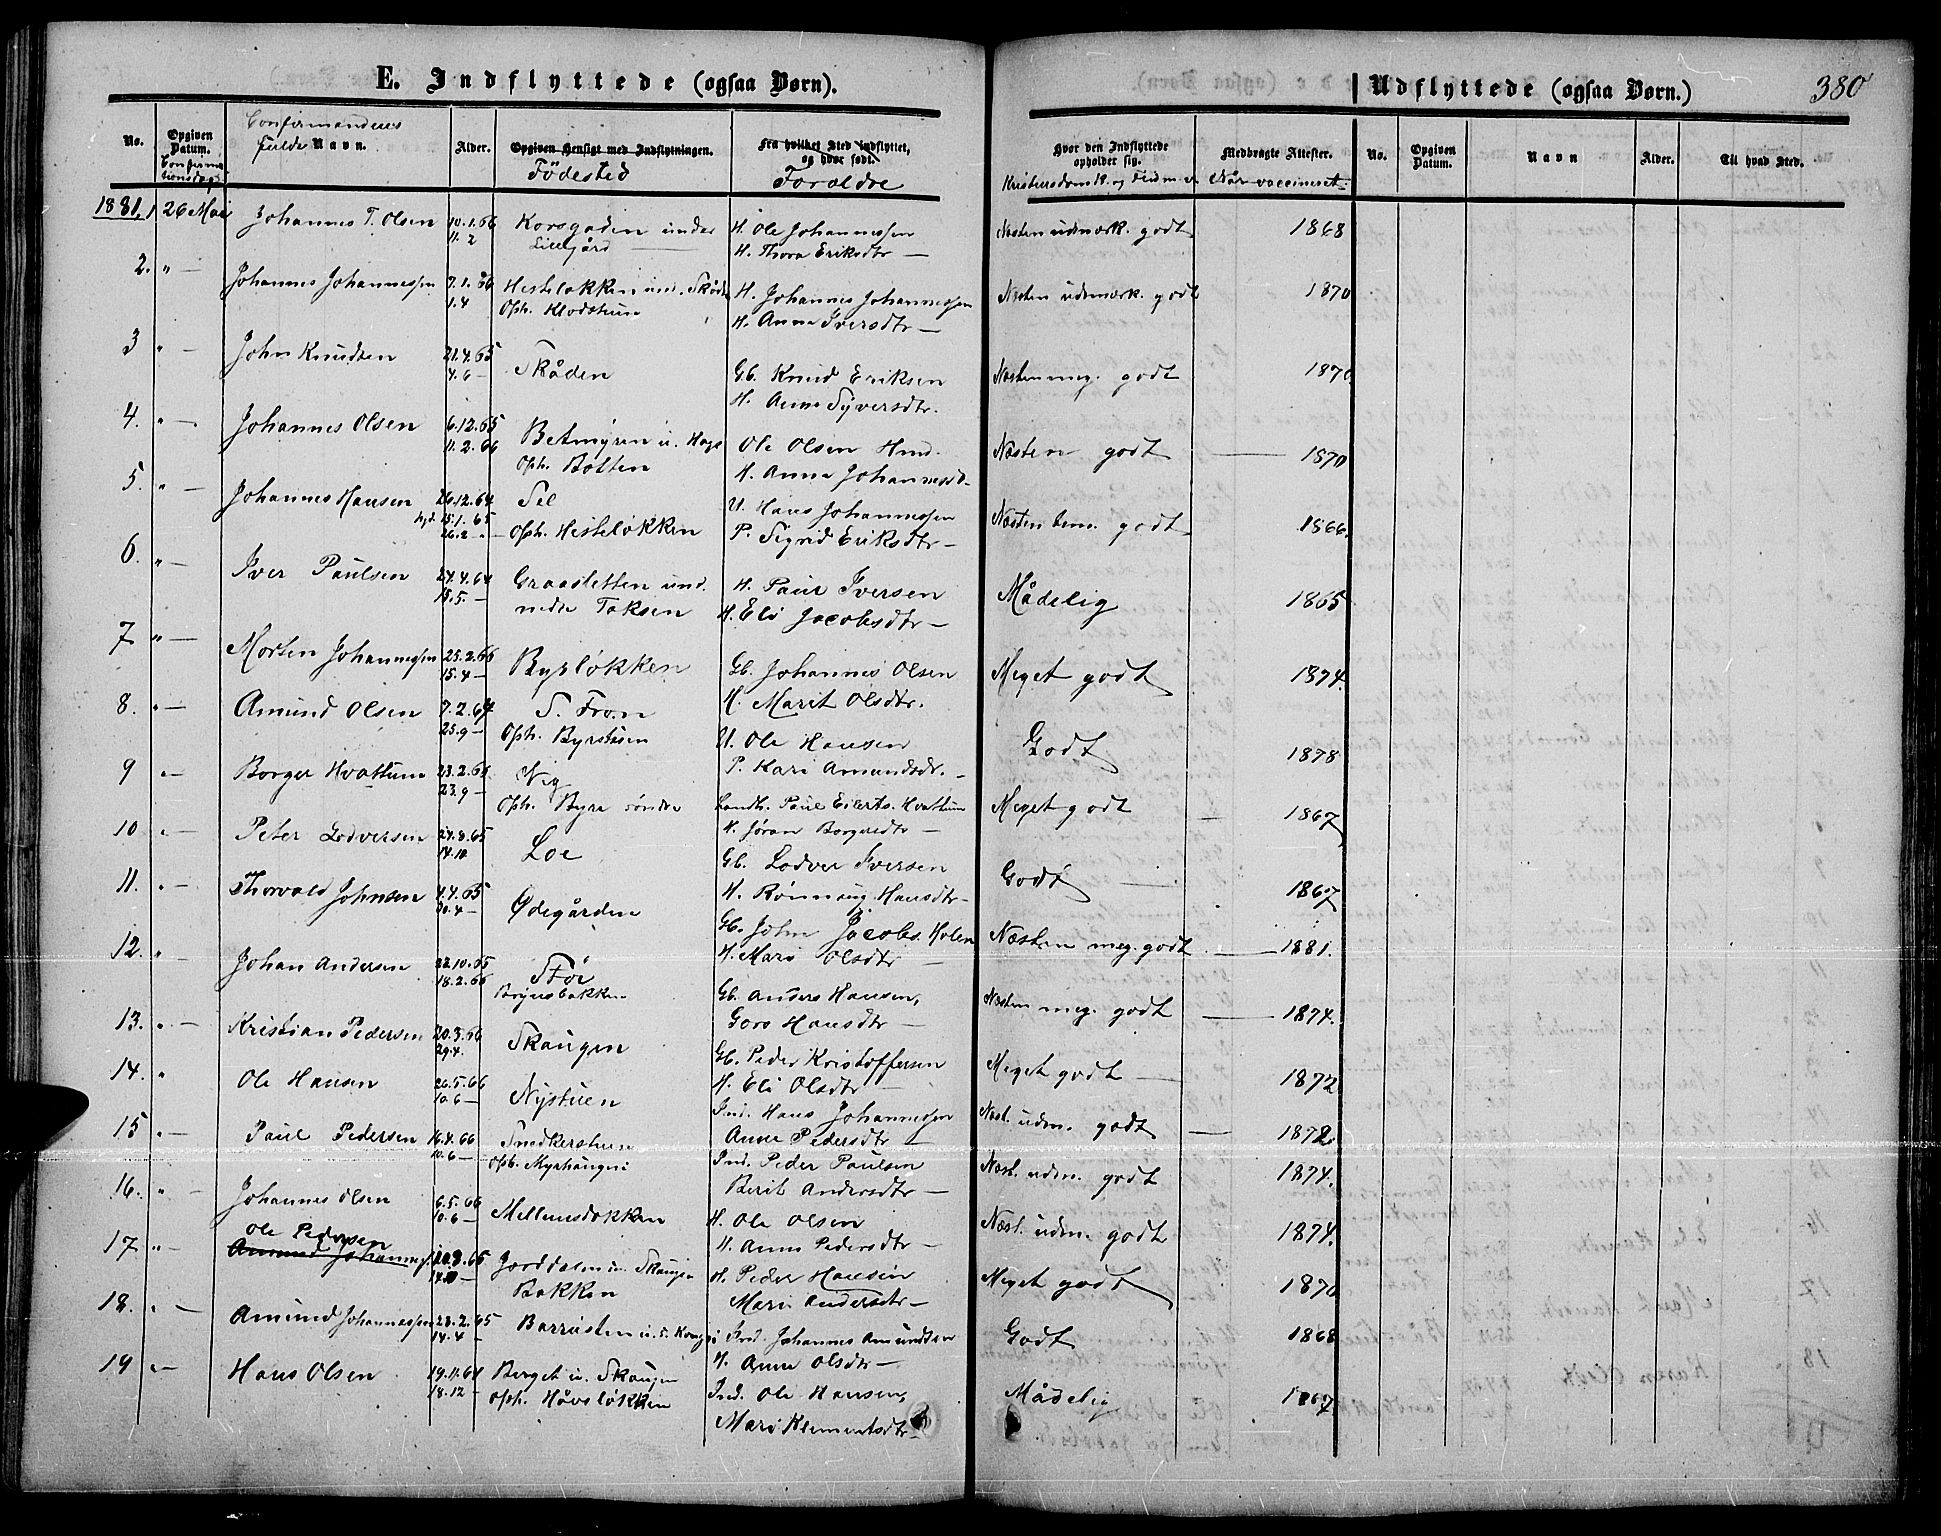 E. Indflyttede (ogsaa Børn).
Udflyttede (ogsaa Børn.)
380
No.
Opgiven Datum.
Confirmationsdag
Confirmandens
fulde Navn.
Alder.
Opgiven Hensigt med Indflytningen.
Födested
Fra hvilket Sted indflyttet, og hvor født.
Foroldre
Hvor den Indflyttede opholder sig.
Kristensdoms K. og Flid m. v.
Medbragte Attester.
Når vaccineret.
No.
Opgiven Datum.
Navn
Alder.
Til hvad Sted.
1881. 1 26 Mai Johannes T. Olsen 10.1.66 Korsgaden under H. Ole Johannessen Næsten udmærk. godt 1868
11.2 Lillegård H. Thora Eriksdtr —
2. " — Johannes Johannessen 7.1.66 Hesteløkken und. Skåde H. Johannes Johannessen Næsten udmærk. godt 1870
1.4 Oph. Klodstuen H. Anne Iversdtr —
3 " — John Knudsen 21.4.65 Skåden Gb. Knud Eriksen Næsten meg. godt 1870.
4.6 — H. Anne Syversdtr.
4. " — Johannes Olsen 6.12.65 Betmyren u. Hage Ole Olsen Hund. Næsten godt — 1870
11.2.66 Oph. Botten H. Anne Johannesd.
5. " — Johannes Hansen 26.12.64 Sel U. Hans Johannessen Næsten tem. godt 1866.
hjd. 15.1.65 Oph. Hesteløkken P. Sigrid Eriksdtr —
26.2 "
6. " — Iver Paulsen 24.4.64 Graasletten und. H. Paul Iversen Mådelig 1865
15.5. — nedre Toksen H. Eli Jacobsdtr —
7 " — Morten Johannessen 25.2.66 Byrløkken Gb. Johannes Olsen Meget godt 1874.
15.4 — H. Marit Olsdtr.
8. " — Amund Olsen 7.2.64 S. Fron U. Ole Hansen Godt 1878
25.9 — Oph. Byrstuen P. Kari Amundsdr. —
9 " — Borger Hvattum 23.2.65 Oph. Byre søndre Landh. Paul Eierts. Hvattum Meget godt — 1867
23.9 — H. Jøran Borgersdtr —
10 " — Peter Lodversen 27.8.65 Loe Gb. Lodver Iversen Godt — 1867
14.10 H. Rønnaug Hansdtr —
11. " — Thorvald Johnsen 4.4.65 Ødegården Gb. John Jacobs. Holen Næsten meg. godt — 1881.
30.4 — H. Mari Olsdtr —
12. " Johan Andersen 22.10.65 Stöe Gb. Anders Hansen, Næsten meg. godt — 1874.
18.2.66 Brynsbakken Goro Hansdtr —
13. " — Kristian Pedersen 20.3.66 Skaugen Gb. Peder Kristoffersen Meget godt — 1872
29.4. H. Eli Olsdtr —
14. " Ole Hansen 26.5.66 Nystuen Ind. Hans Johannessen Næst. udm. godt — 1872.
10.6 — Anne Pedersdtr —
15 " — Paul Pedersen 16.4.66 Smedkerstuen Ind. Peder Paulsen Næst. udm. godt 1874.
10.6 — oph. Myrhaugen Berit Andersdtr —
16. " — Johannes Olsen 6.5.66 Mellemsløkken H. Ole Olsen Næst. udm. godt 1874.
10.6 — H. Anne Pedersdtr —
17 " — Ole Pedersen Amund Johanness. 20.8.65 Jorddalen u. Skaugen H. Peder Hansen Meget godt 1870
14.10 — Bakken Mari Andersdtr —
18. " — Amund Johannessen 23.2.65 Barrusten u. s. Kongsli Ind. Johannes Amundsen Godt 1868
14.4 — H. Anne Olsdtr —
19 " — Hans Olsen 19.11.64 Berget u. Skaugen Ind. Ole Hansen, Mådelig 1867.
18.12 — oph. Håvsløkken Mari Klementsdtr —